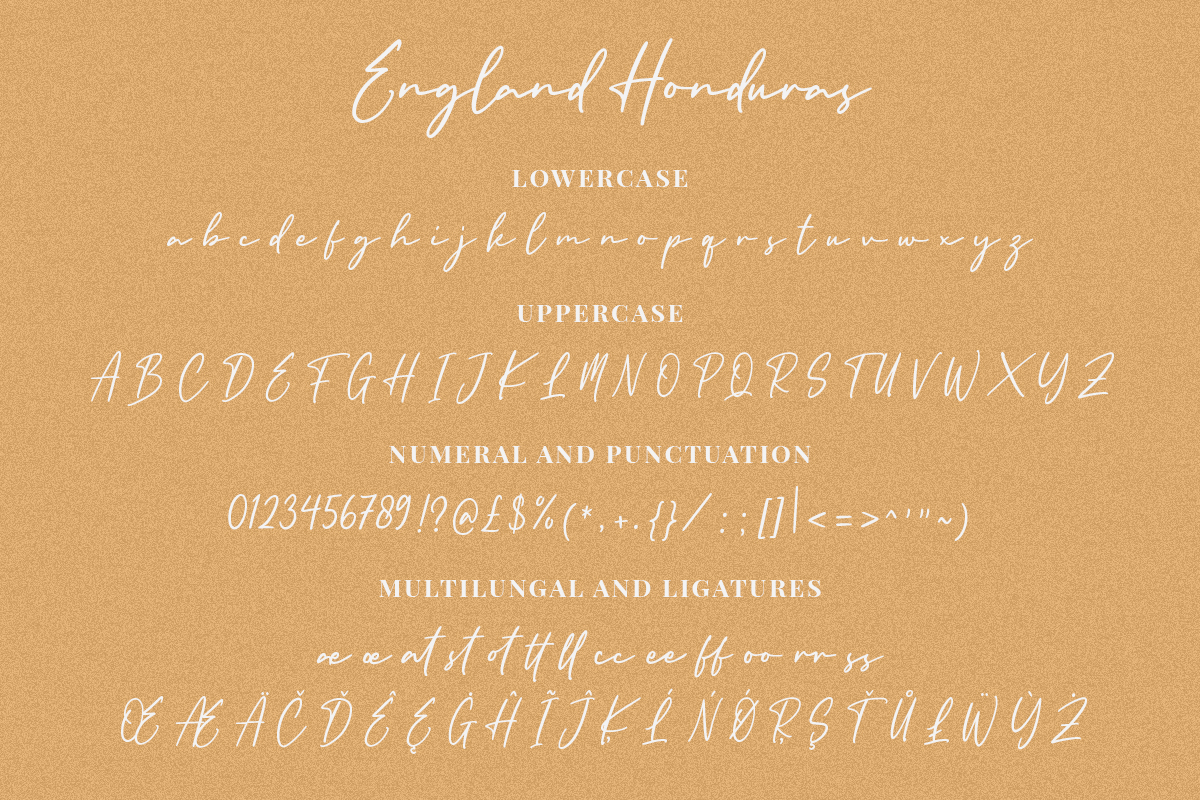 England Honduras
LOWERCASE
a b c d e f g h i j k l m n o p q r s t u v w x y z
UPPERCASE
A B C D E F G H I J K L M N O P Q R S T U V W X Y Z
NUMERAL AND PUNCTUATION
0123456789!?@£$%(*,+.{}/:;[]|<=>^'"~)
MULTILUNGAL AND LIGATURES
œ æ at st ot tt ll cc ee ff oo rr ss
Œ Æ Ä Č Ď Ê Ę Ġ Ĥ Ĩ Ĵ Ķ Ĺ Ń Ǿ Ŗ Ş Ť Ů Ł Ẅ Ỳ Ż